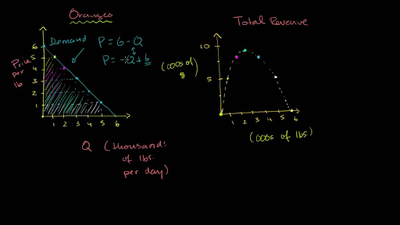 Oranges
Total Revenue
Demand
P = 6 - Q
P = -Q + 6
Price
per
lb
6
5
4
3
2
1
1 2 3 4 5 6
Q (thousands
of lbs.
per day)
10
5
(000s of
$)
1 2 3 4 5 6
(000s of lbs)